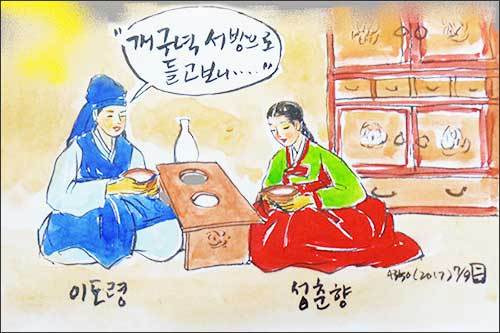 "개구녁 서방으로
들고보니....."
이도령
성춘향
(2017) 7/9